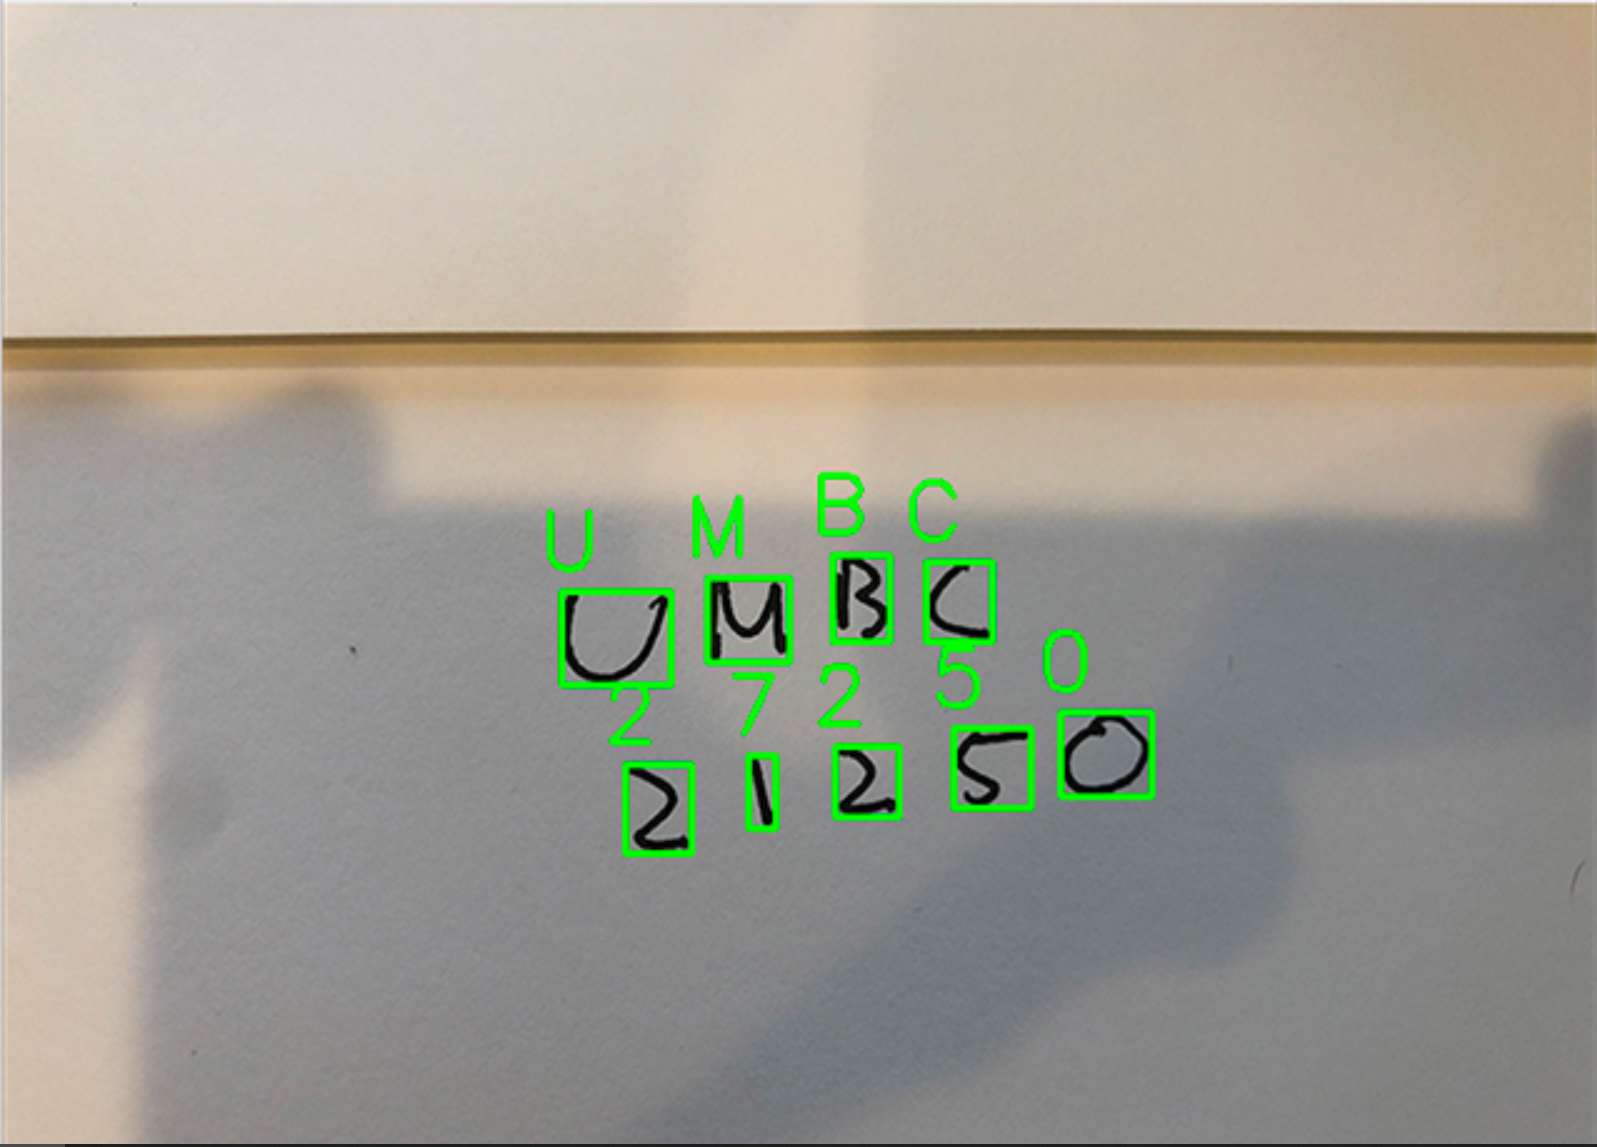 U M B C
U M B C
2 7 2 5 0
2 1 2 5 0